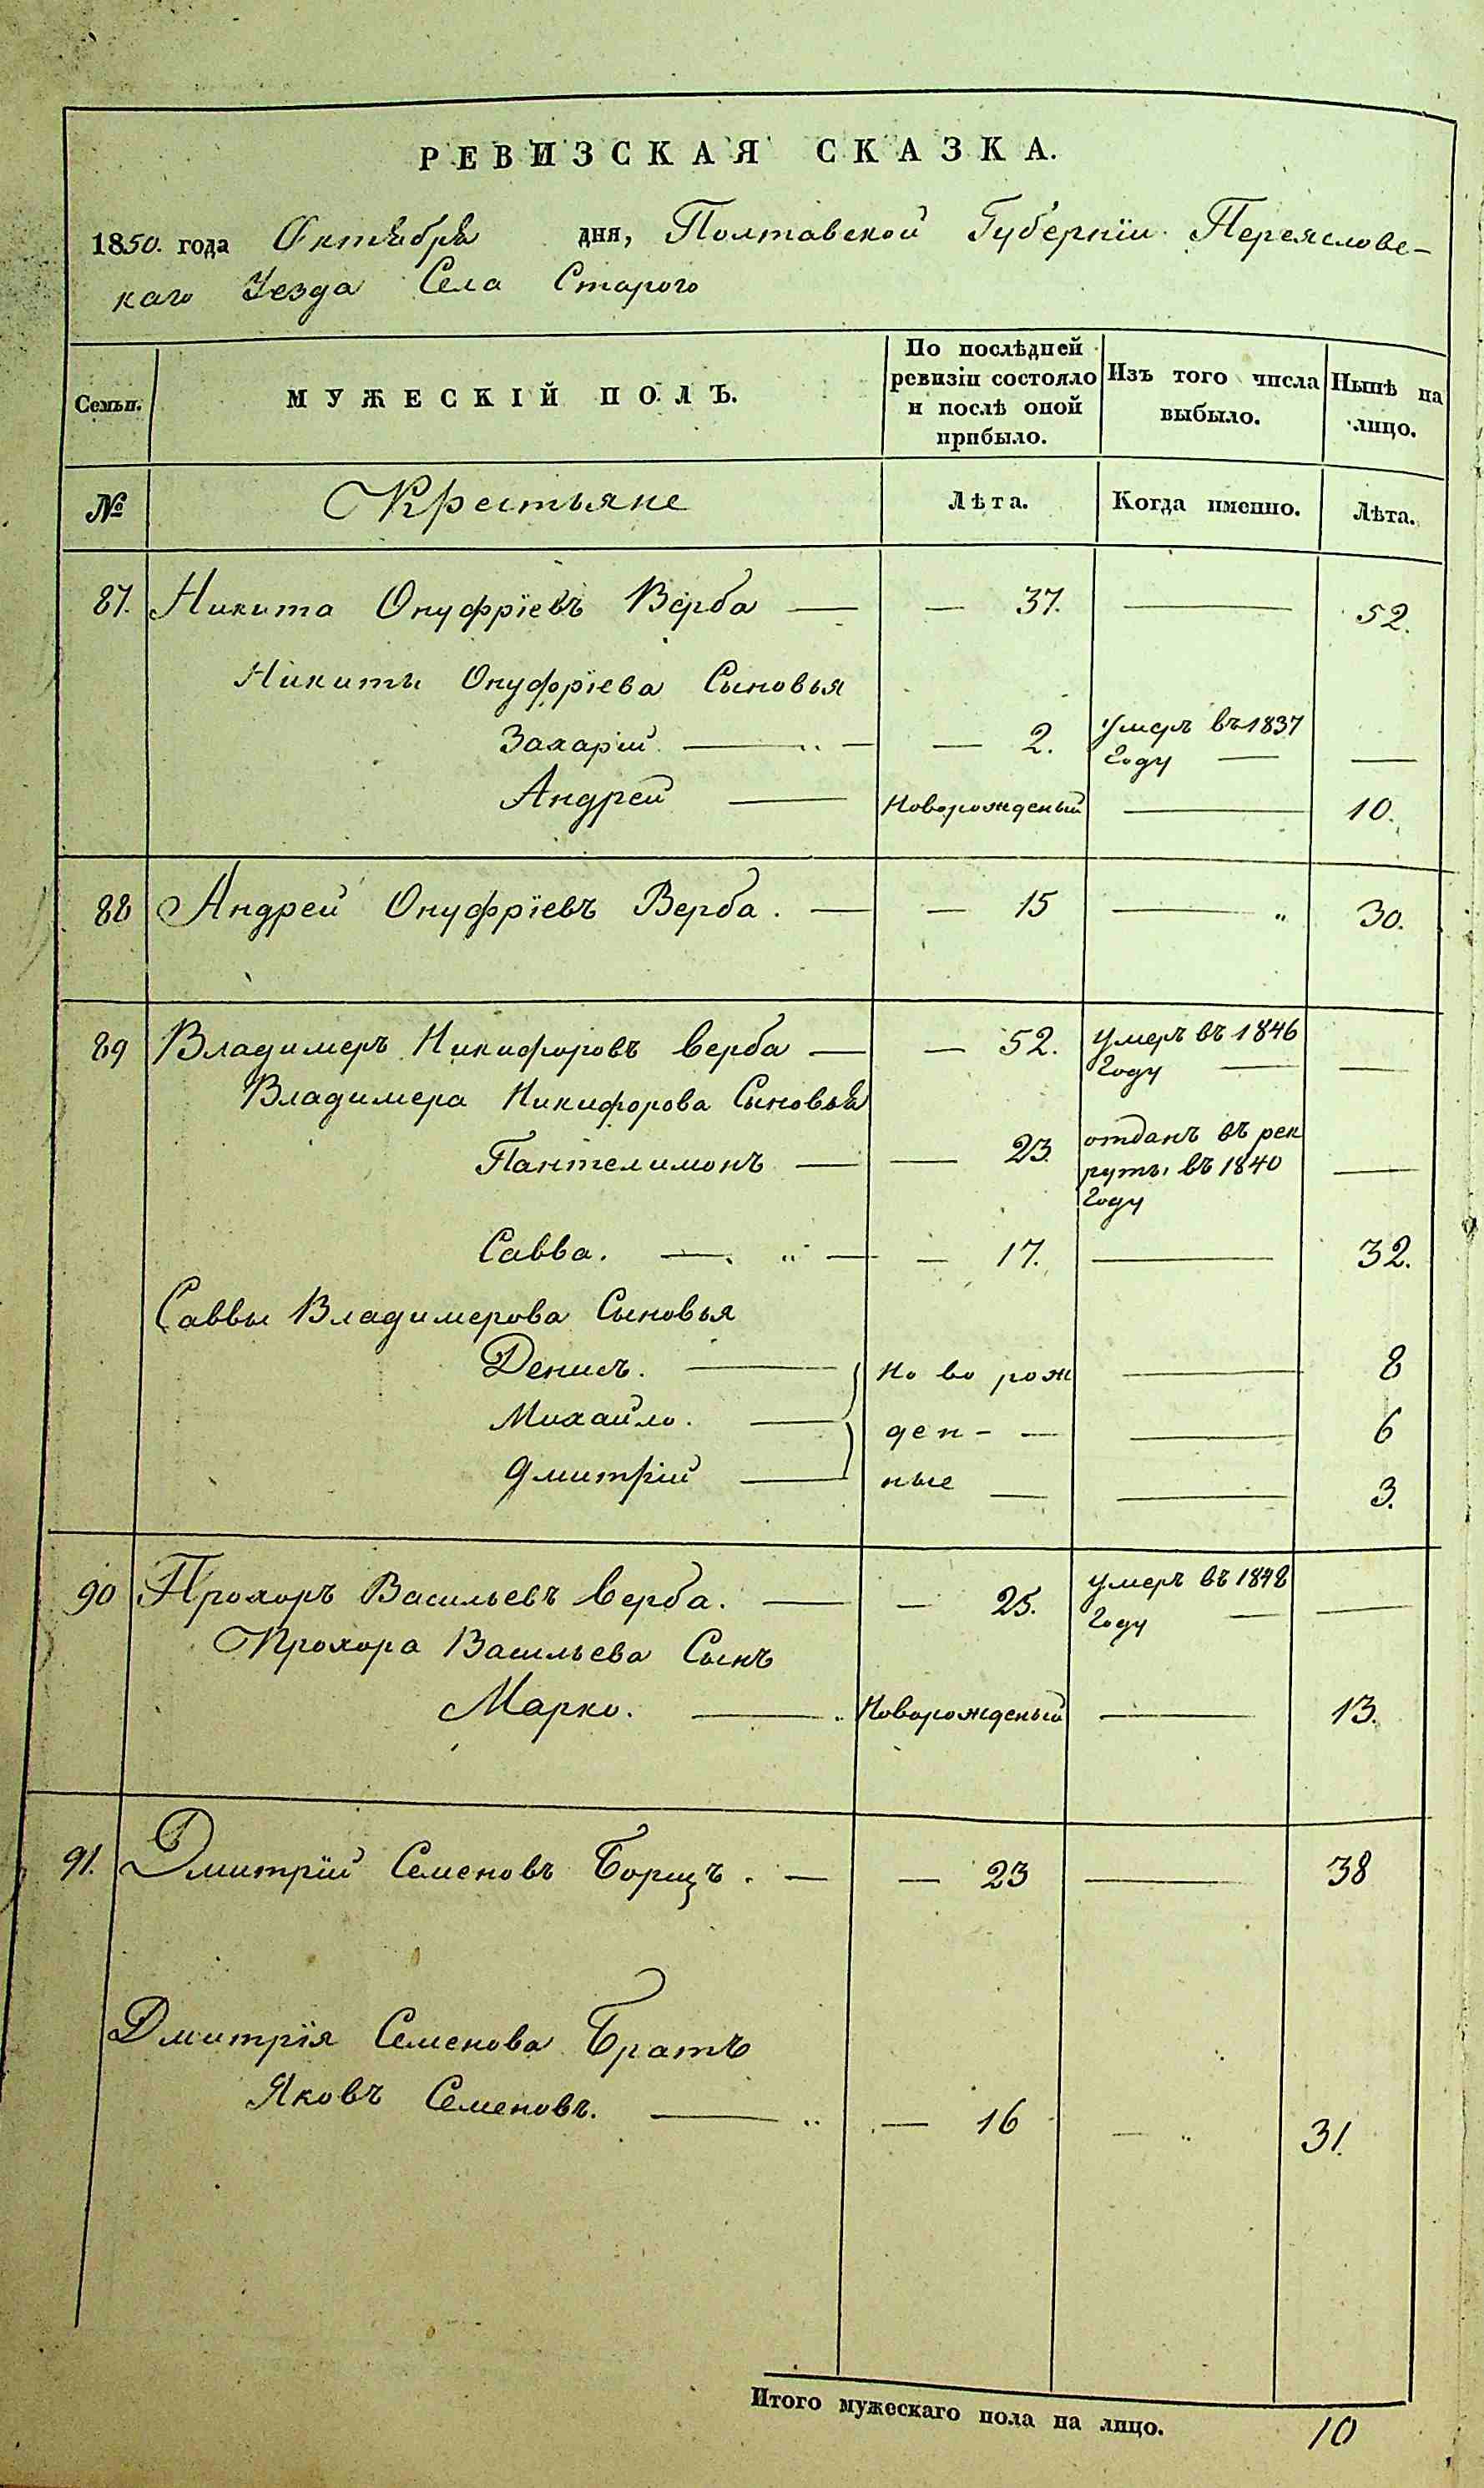 РЕВИЗСКАЯ СКАЗКА.
1850. года Октября дня, Полтавской Губерніи Переяславс-
каго Уезда Села Старого
Семьи. МУЖЕСКІЙ ПОЛЪ. По послѣдней ревизіи состояло и послѣ оной прибыло. Изъ того числа выбыло. Нынѣ на лицо.
№ Крестьяне Лѣта. Когда именно. Лѣта.
87. Никита Онуфріевъ Верба — — 37. — 52.
Никиты Онуфріева Сыновья
Захарій — — 2. умеръ въ 1837 году — —
Андрей — Новорожденый — 10.
88 Андрей Онуфріевъ Верба. — — 15 — „ 30.
89 Владимеръ Никифоровъ Верба — — 52. умеръ въ 1846 году — —
Владимера Никифорова Сыновья
Пантелимонъ — — 23. отданъ въ рекруты въ 1840 году —
Савва. — „ — — 17. — 32.
Саввы Владимерова Сыновья
Денисъ. — Но во рож — 8
Михайло. — ден- — — 6
Дмитрій — ные — — 3.
90 Прохоръ Васильевъ Верба. — — 25. умеръ въ 1848 году — —
Прохора Васильева Сынъ
Марко. — Новорожденый — 13.
91. Дмитрій Семеновъ Борщъ. — — 23 — 38
Дмитрія Семенова Братъ
Яковъ Семеновъ. — „ — 16 — „ 31.
Итого мужескаго пола на лицо. 10